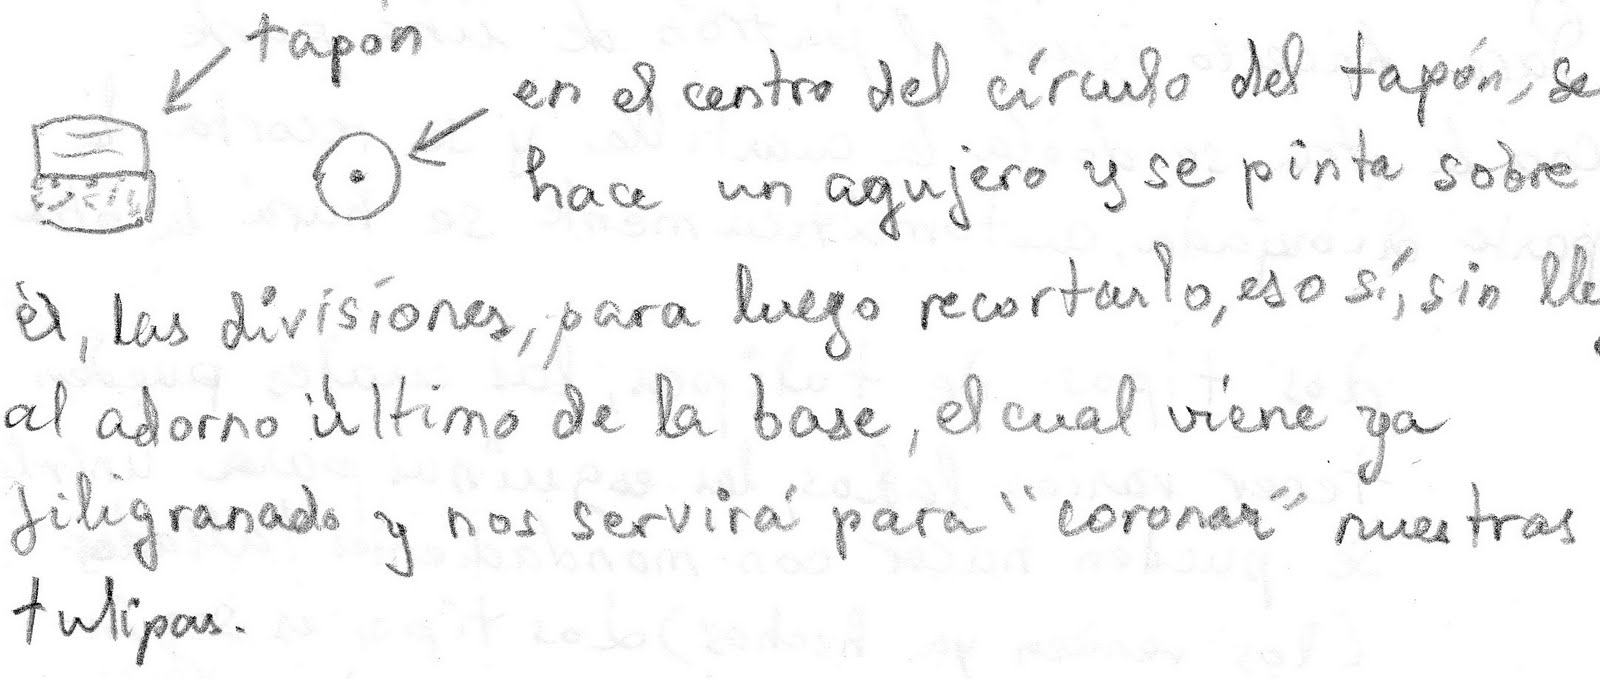 tapón
en el centro del círculo del tapón, se
hace un agujero y se pinta sobre
él, las divisiones, para luego recortarlo, eso sí, sin
al adorno último de la base, el cual viene ya
filigranado y nos servirá para "coronar" nuestras
tulipas.